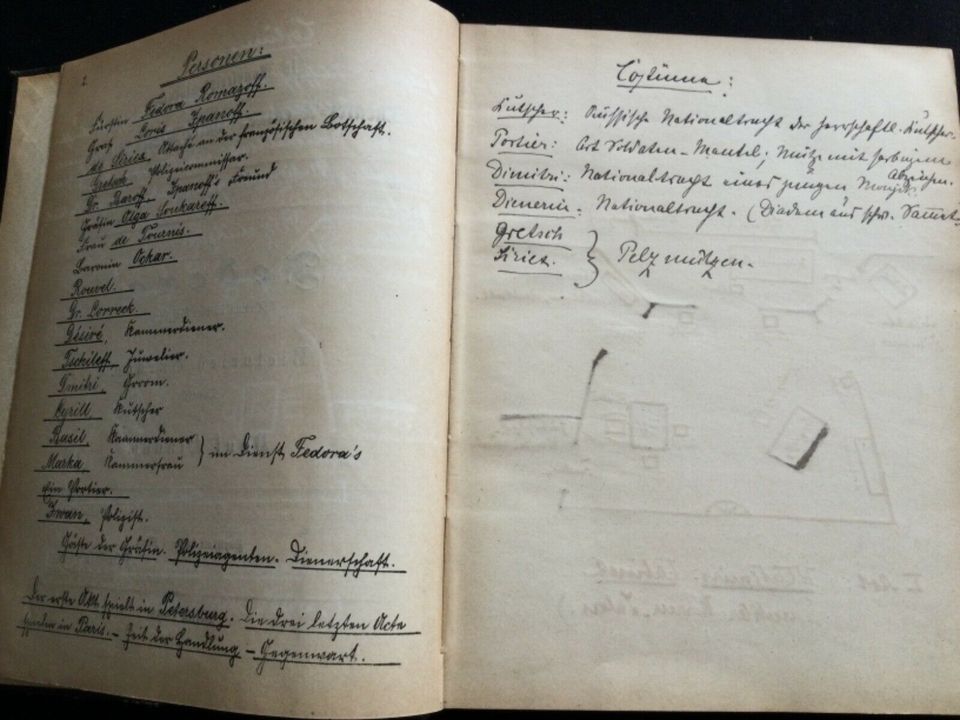 1.
Personen:
Fürstin Fedora Romazoff.
Graf Loris Ipanoff.
de Siriex, Attaché an der französischen Botschaft.
Gretsch, Polizeicommissar.
Gr. Baroff, Ipanoff's Freund
Gräfin Olga Soukareff.
Frau de Tournes.
Baronin Ockar.
Rouvel.
Gr. Lorreck.
Désiré, Kammerdiener.
Tschileff, Juwelier.
Dmitri, Groom.
Cyrill, Kutscher
Basil, Kammerdiener
Marka, Kammerfrau } im Dienst Fedora's
Ein Portier.
Iwan, Polizist.
Gäste der Gräfin. Polizeiagenten. Dienerschaft.
Der erste Akt spielt in Petersburg. Die drei letzten Acte
spielen in Paris. – Zeit der Handlung – Gegenwart.
Costüme:
Kutscher: Russische Nationaltracht der herrschaftl. Kutscher.
Portier: Art Soldaten-Mantel; Mütze mit farbigem
Abzeichen.
Dimitri: Nationaltracht eines jungen
Dienerin: Nationaltracht. (Diadem aus schw. Sammet
Gretsch
Siriex. } Pelzmützen.
I. Act